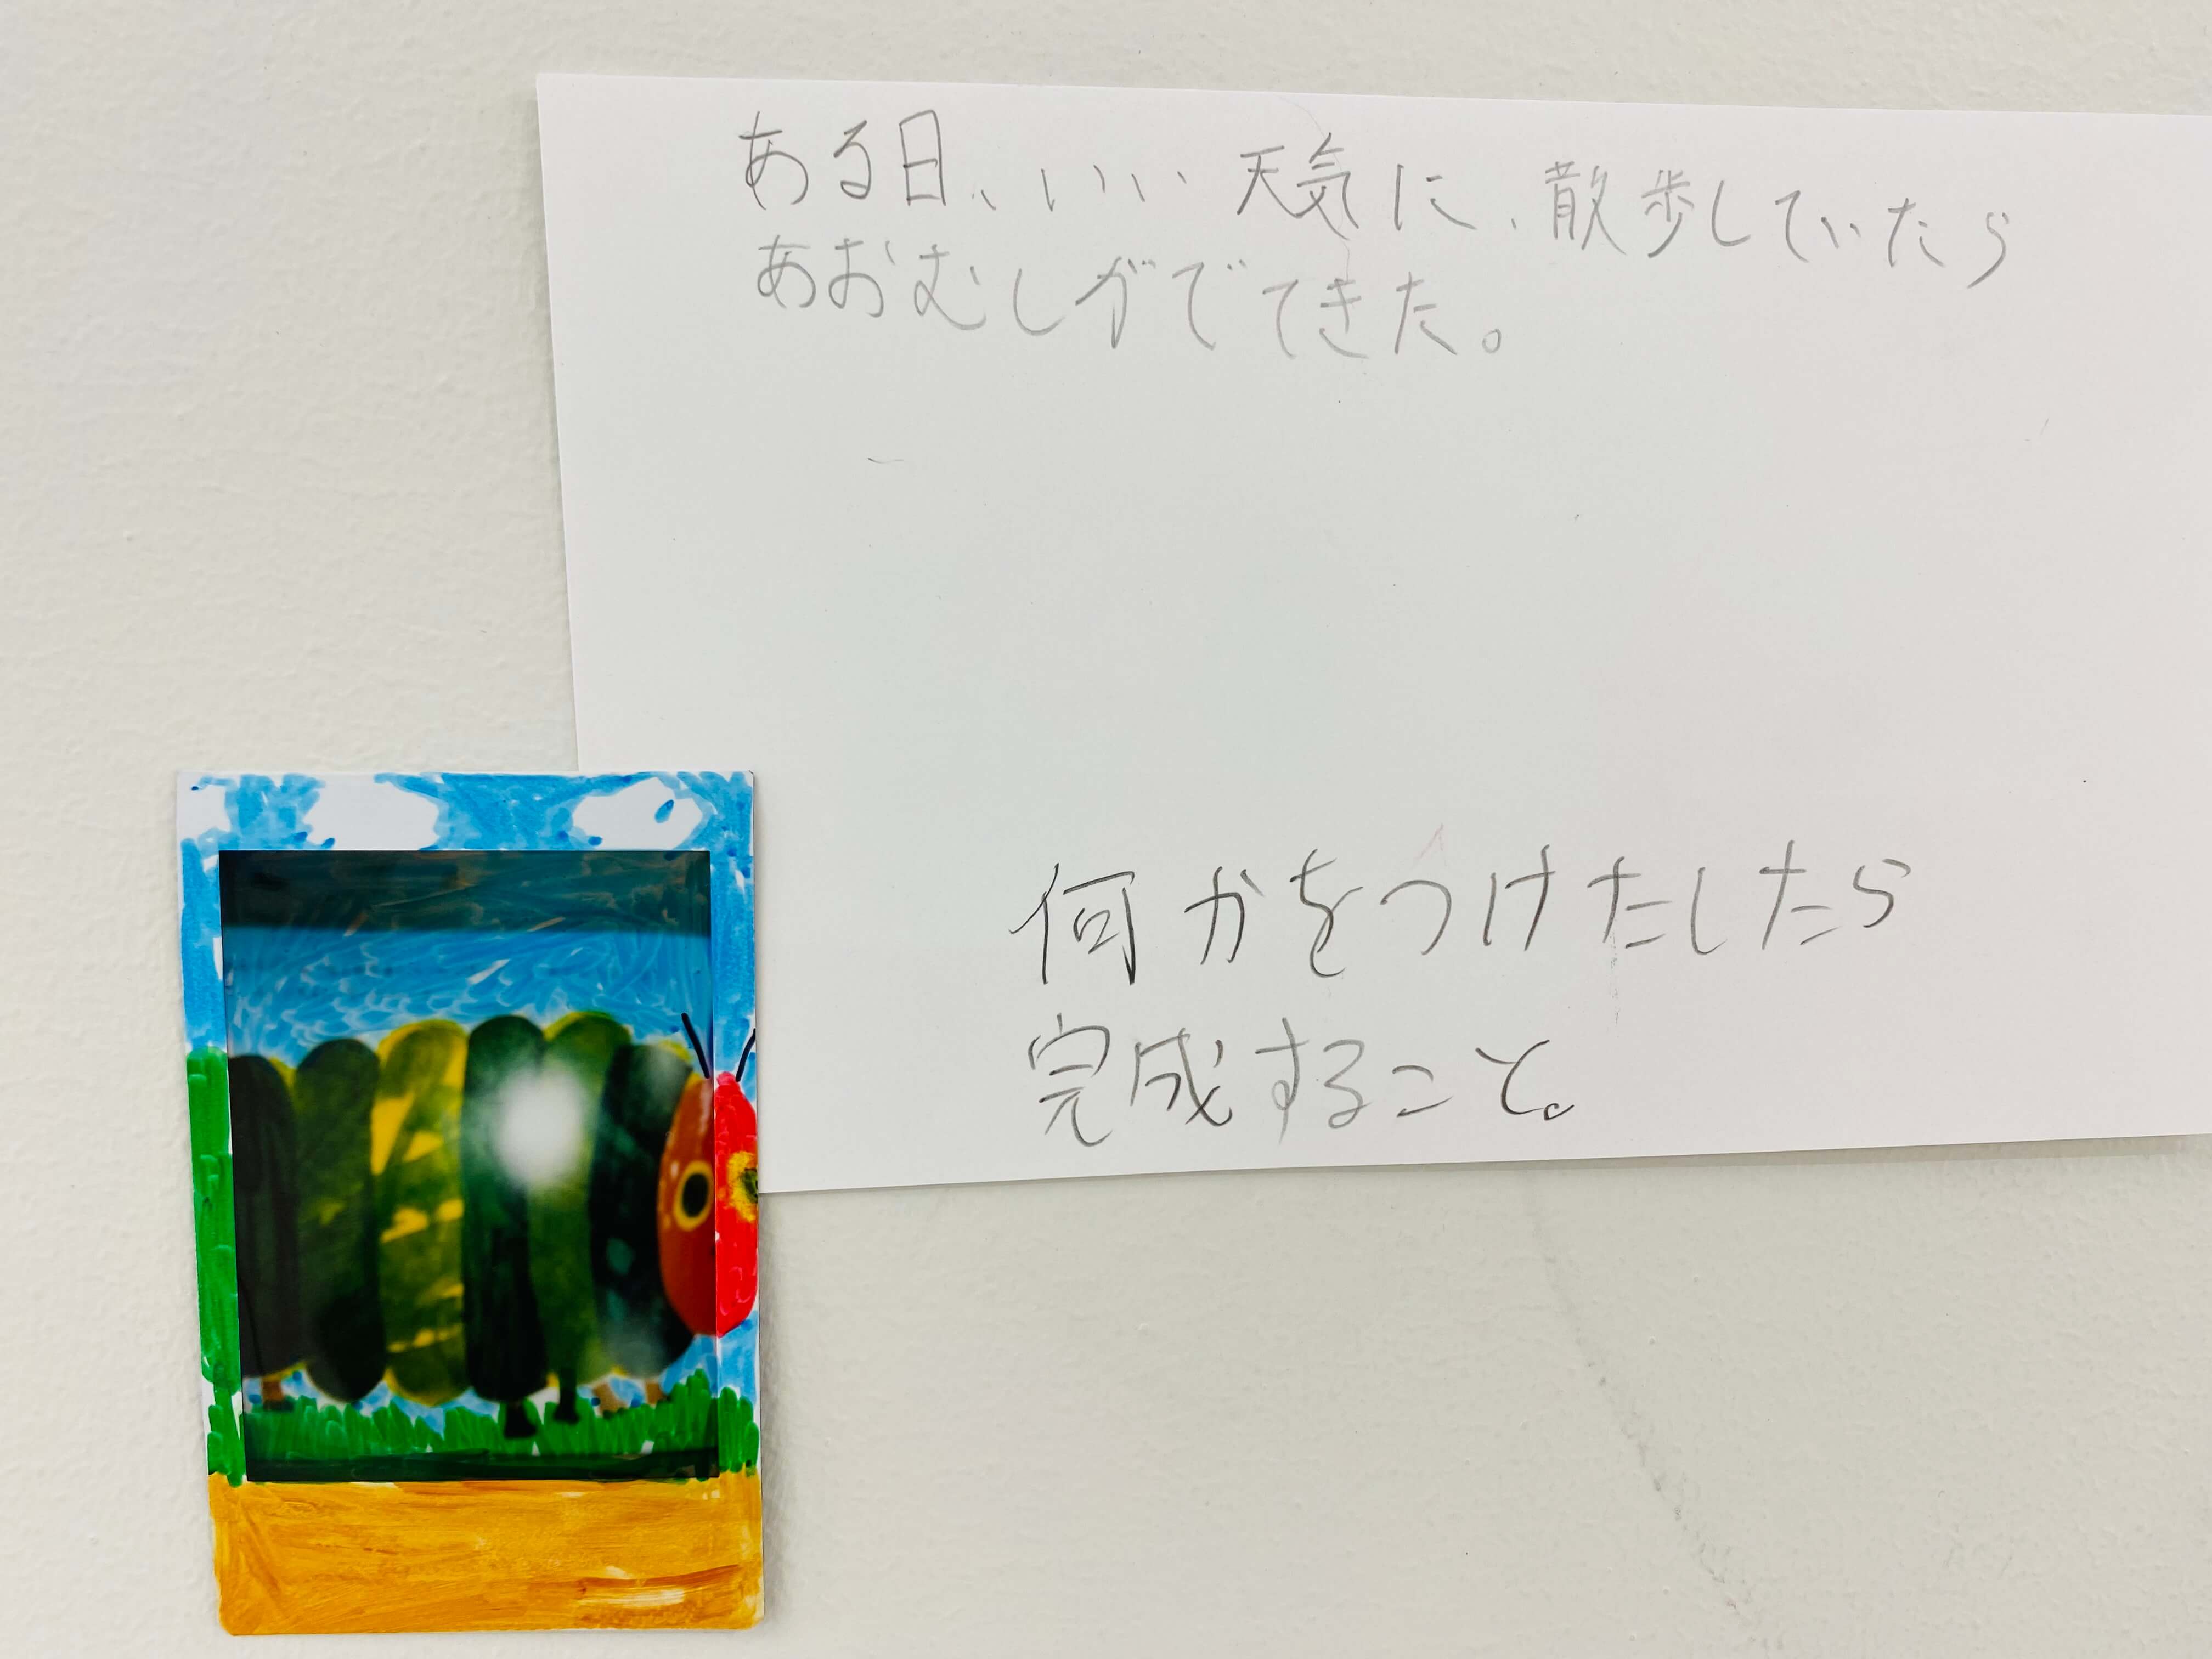 ある日、いい天気に、散歩していたら
あおむしがでてきた。
何かをつけたしたら
完成すること。